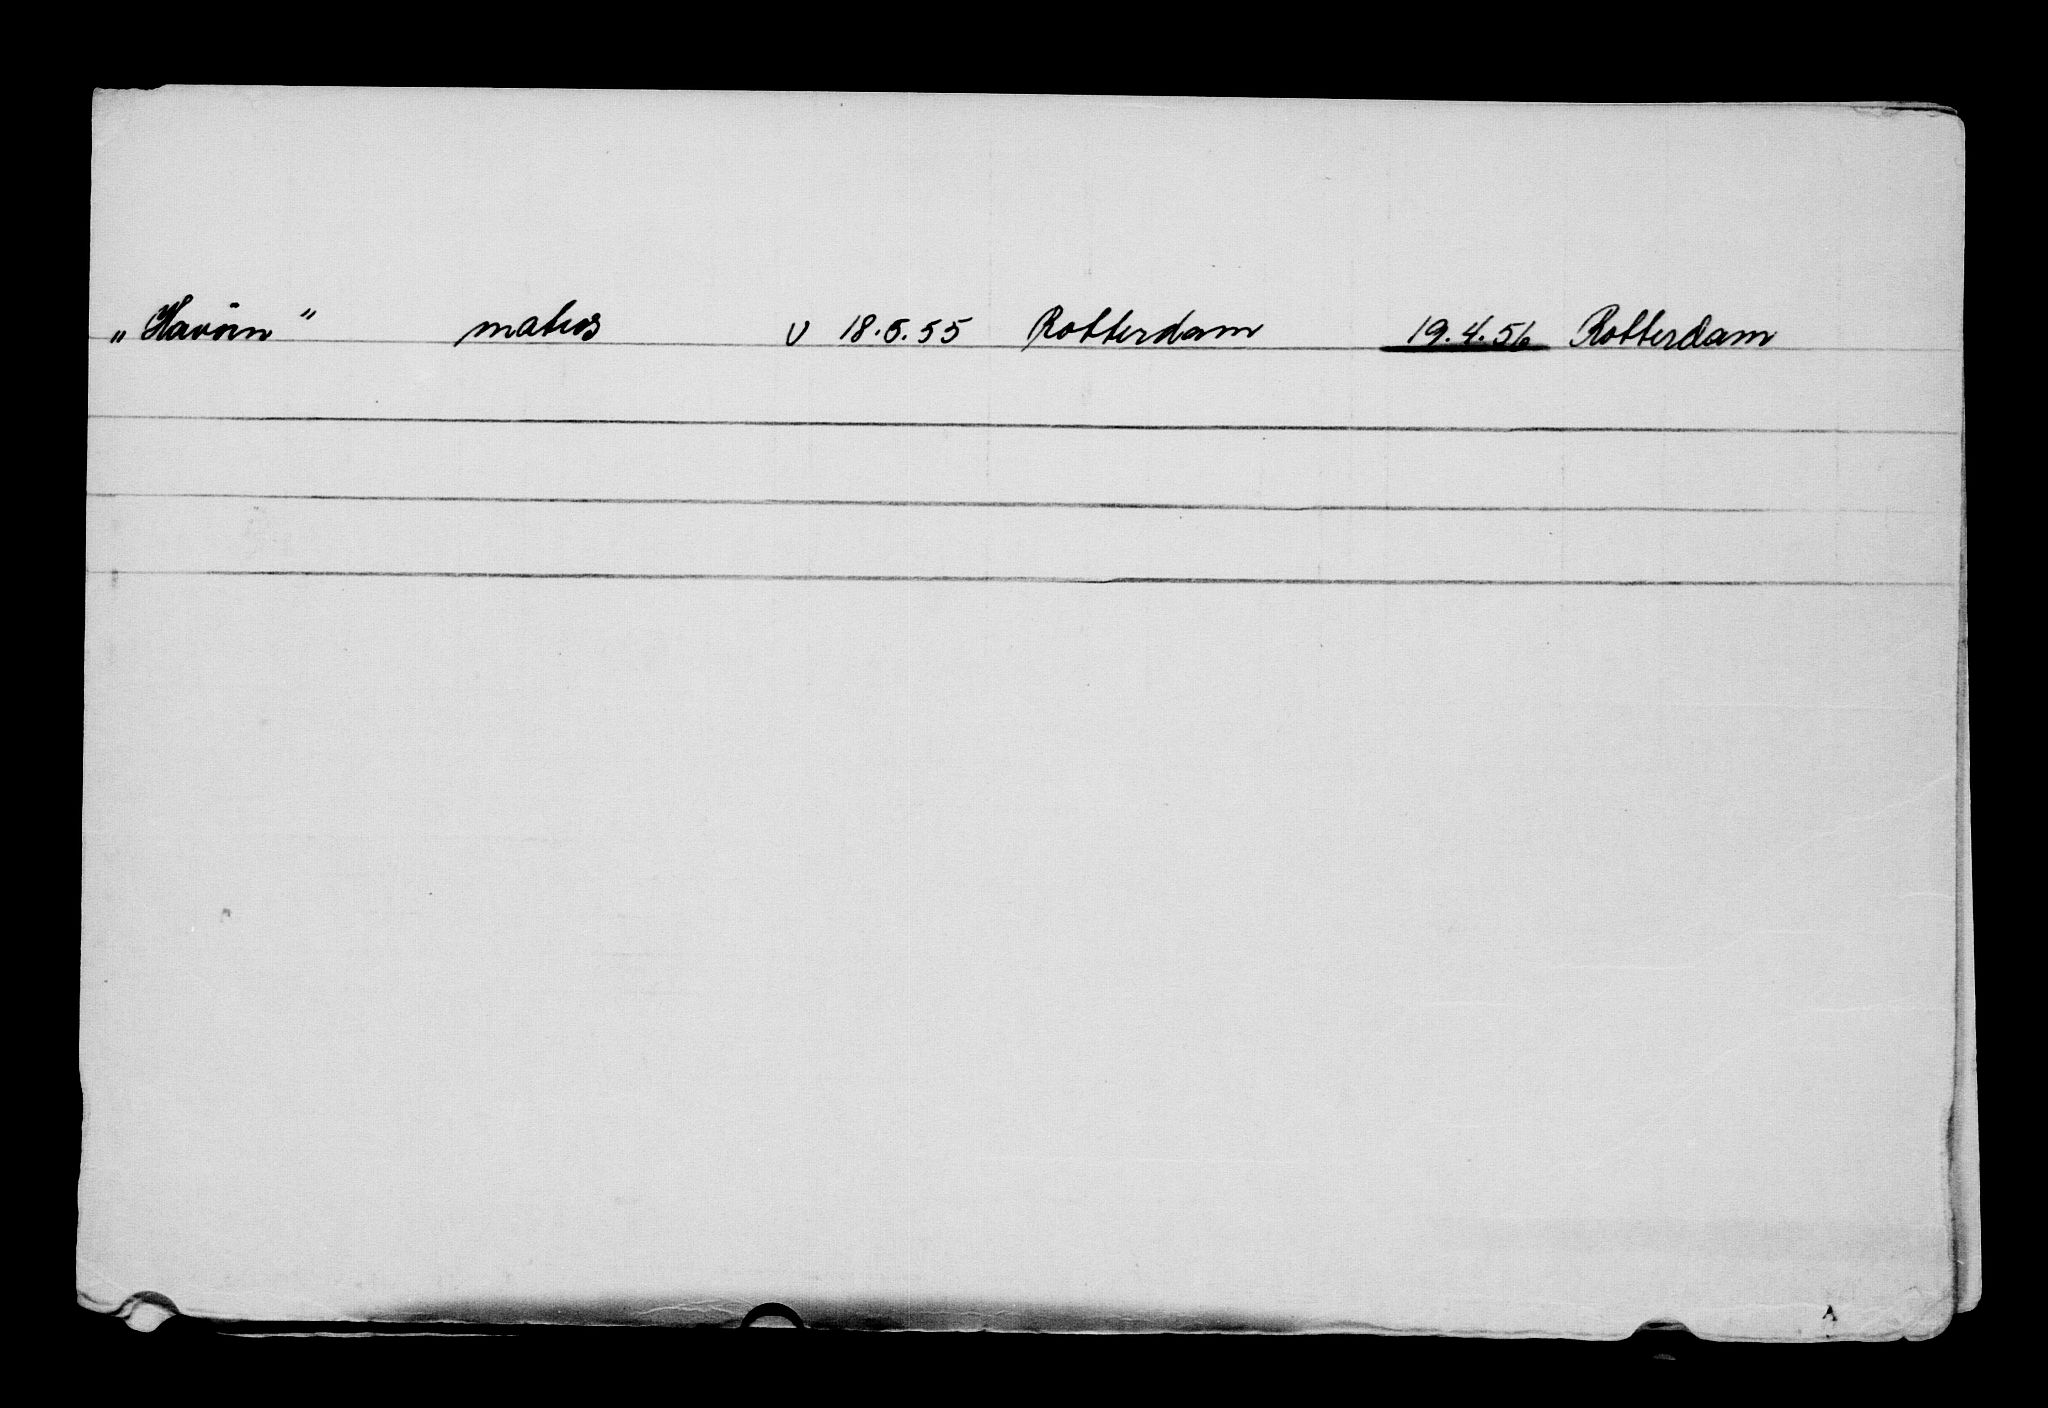 „Havörn" matros v 18.5.55 Rotterdam 19.4.56 Rotterdam
A